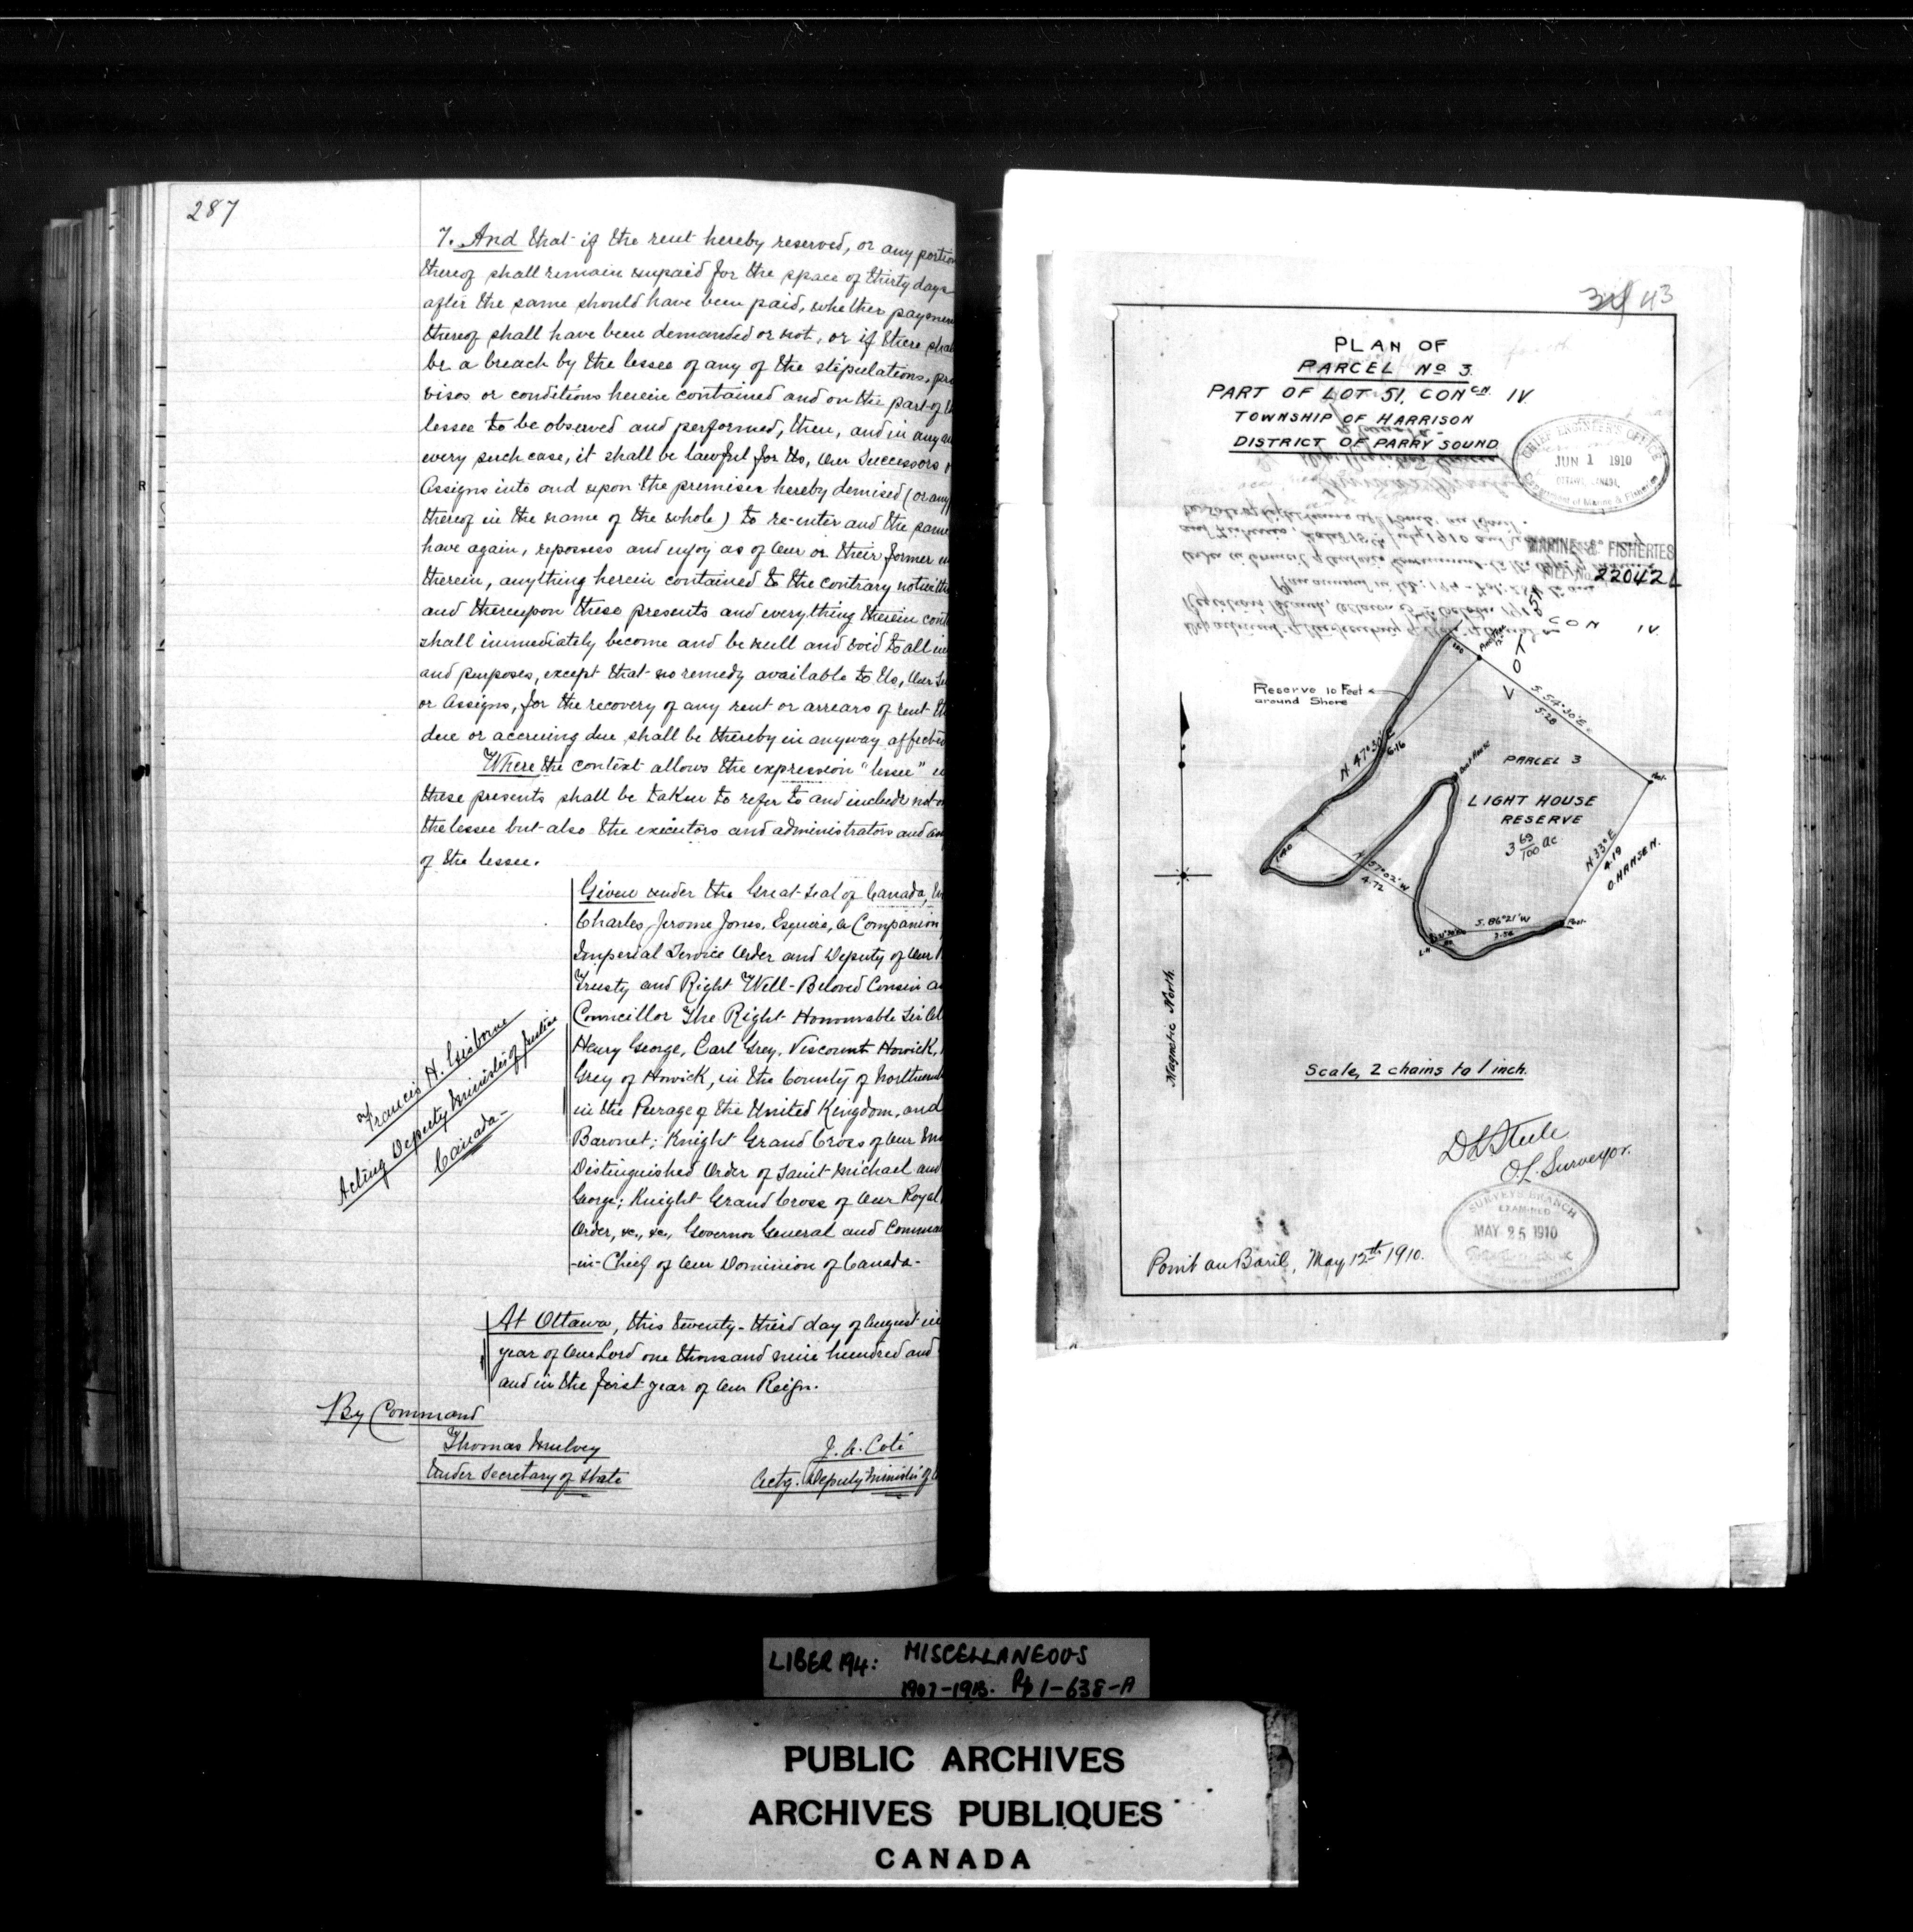 287
7. And that if the rent hereby reserved, or any portion
thereof shall remain unpaid for the space of thirty days
after the same should have been paid, whether paymen
thereof shall have been demanded or not, or if there shal
be a breach by the lessee of any of the stipulations, pro
visos or conditions herein contained and on the part of th
lessee to be observed and performed, then, and in any an
every such case, it shall be lawful for Us, Our Successors o
Assigns into and upon the premises hereby demised (or any
thereof in the name of the whole) to re-enter and the same
have again, repossess and enjoy as of Our or their former
therein, anything herein contained to the contrary notwith
and thereupon these presents and everything therein cont
shall immediately become and be null and void to all in
and purposes, except that no remedy available to Us, Our Su
or Assigns, for the recovery of any rent or arrears of rent th
due or accruing due shall be thereby in anyway affected
Where the context allows the expression "lessee" i
these presents shall be taken to refer to and include not o
the lessee but also the executors and administrators and as
of the lessee.
Given under the Great Seal of Canada,
Charles Jerome Jones, Esquire, a Companion
Imperial Service Order and Deputy of Our
Trusty and Right Well-Beloved Cousin a
Councillor The Right Honourable Sir Al
Henry George, Earl Grey, Viscount Howick,
Grey of Howick, in the County of Northumb
in the Peerage of the United Kingdom, and
Baronet; Knight Grand Cross of Our
Distinguished Order of Saint Michael and
George; Knight Grand Cross of Our Royal
Order, &c., &c., Governor General and Comman
-in-Chief of Our Dominion of Canada-
Francis H. Gisborne
Acting Deputy Minister of Justice
Canada-
At Ottawa, this twenty-third day of August in
year of Our Lord one thousand nine hundred and
and in the first year of Our Reign.
By Command
Thomas Mulvey
Under Secretary of State
J. A. Coté
Actg. Deputy Minister of
43
PLAN OF
PARCEL No 3.
PART OF LOT 51, CONCN. IV
TOWNSHIP OF HARRISON
DISTRICT OF PARRY SOUND
CHIEF ENGINEER'S OFFICE
JUN 1 1910
OTTAWA, CANADA
Department of Marine & Fisheries
MARINE & FISHERIES
22042 L
CON IV
LOT 51
Reserve 10 Feet
around Shore
N 47°30'E
6.16
S. 54°30'E
5.28
Post
Boat House
PARCEL 3
LIGHT HOUSE
RESERVE
3 69/100 ac
N 33° E
4.19
O. HANSEN.
N 57°02' W
4.72
S. 86°21' W
2.56
Post
L.H.
Magnetic North
Scale, 2 chains to 1 inch.
D L Steele
O.L. Surveyor.
SURVEYS BRANCH
EXAMINED
MAY 25 1910
Point au Baril, May 12th 1910.
LIBER 194: MISCELLANEOUS
1907-1913. Pp 1-638-A
PUBLIC ARCHIVES
ARCHIVES PUBLIQUES
CANADA